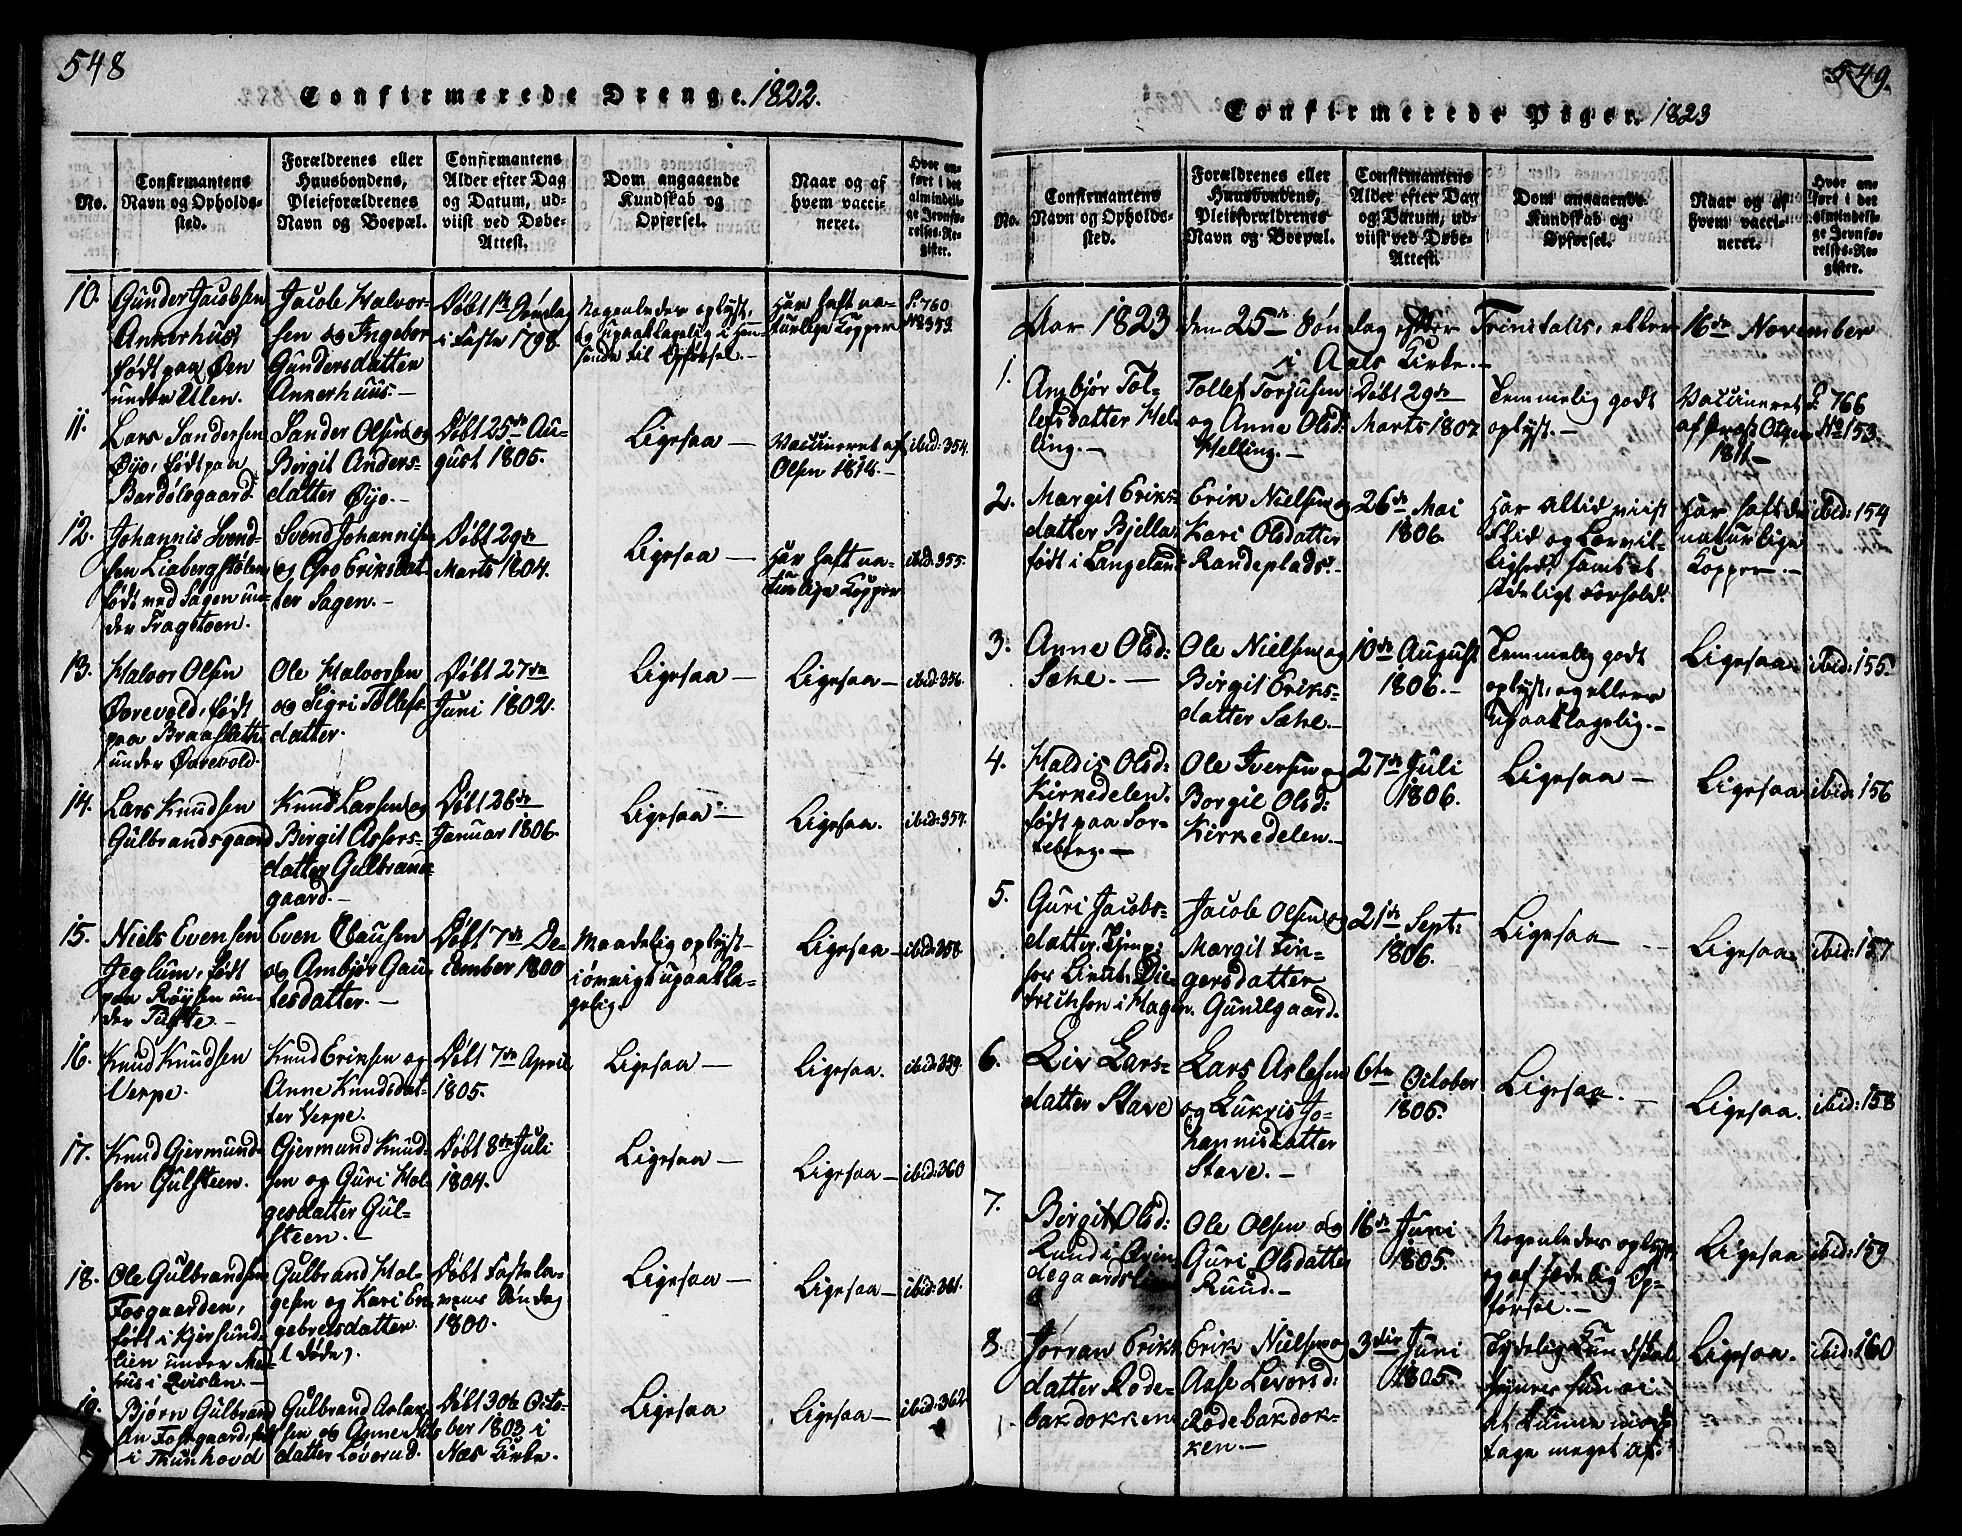 548
Confirmerede Drenge. 1822.
No.
Confirmantens
Navn og Opholds-
sted.
Forældrenes eller
Huusbondens,
Pleieforældrenes
Navn og Boepæl.
Confirmantens
Alder efter Dag
og Datum, ud-
viist ved Døbe-
Attest.
Dom angaaende
Kundskab og
Opførsel.
Naar og af
hvem vacci-
neret.
Hvor an-
ført i det
almindeli-
ge Jevnfø-
relses-Re-
gister.
10.
Gunder Jacobsen
Ankerhus,
født paa Øen
under Ulen.
Jacob Halvor-
sen og Ingebor
Gundersdatter
Ankerhuus.-
Døbt 1ste Søndag
i Faste 1798.
Nogenledes oplyst,
og upaaklagelig i Hen-
seende til Opførsel.-
Har haft na-
turlige Kopper
S: 760
No 353.
11.
Lars Sandersen
Øyo, født paa
Bardølsgaard
Sander Olsen og
Birgit Anders-
datter Øyo.-
Døbt 25de Au-
gust 1805.
Ligesaa -
Vaccineret af
Olsen 1814.-
ibid: 354.
12.
Johannis Svend-
sen Liabergstølen
født ved Sagen un-
der Fragstoen.
Svend Johannis
og Gro Eriksdat-
ter Sagen.-
Døbt 29de
Marts 1804.
Ligesaa -
Har haft na-
turlige Kopper
ibid: 355.
13.
Halvor Olsen
Øvrevold, født
paa Braaslette
under Øvrevold.
Ole Halvorsen
og Sigri Tollefs-
datter.
Døbt 27de
Juni 1802.
Ligesaa -
Ligesaa -
ibid: 356.
14.
Lars Knudsen
Gulbrandsgaard
Knud Larsen og
Birgit Assers-
datter Gulbrands-
gaard.-
Døbt 26de
Januar 1806.
Ligesaa -
Ligesaa.
ibid: 354.
15.
Niels Evensen
Jeglum, født
paa Røysen un-
der Tufte.-
Even Clausen
og Ambjør Gau-
tesdatter.-
Døbt 7de De-
cember 1800
Maadelig oplyst-
iøvrigt upaakla-
gelig.
Ligesaa -
ibid: 358.
16.
Knud Knudsen
Verpe.
Knud Eriksen og
Anne Knudsdat-
ter Verpe.
Døbt 7de April
1805.
Ligesaa -
Ligesaa.
ibid: 359.
17.
Knud Gjermund-
sen Gulsteen.
Gjermund Knud-
sen og Guri Hol-
gesdatter Gul-
steen.-
Døbt 8de Juli
1804.
Ligesaa -
Ligesaa -
ibid: 360
18.
Ole Gulbrandsen
Fosgaarden,
født i Kjersund-
lien under
Gulbrand Hol-
gesen og Kari En-
gebretsdatter
(døde).
Døbt Fastela-
vens Søndag
1800.
Ligesaa -
Ligesaa -
ibid: 361.
19.
Bjørn Gulbrand
sen Fosgaard,
i Tkunhovd
Gulbrand Aslak-
sen og Anne Nils
datter Løverud.
Døbt 30te Octo-
ber 1803 i
Næs Kirke.
Ligesaa
Ligesaa -
ibid: 362
549.
Confirmerede Piger. 1823
No.
Confirmantens
Navn og Opholds-
sted.
Forældrenes eller
Huusbondens,
Pleieforældrenes
Navn og Boepæl.
Confirmantens
Alder efter Dag
og Datum, ud-
viist ved Døbe-
Attest.
Dom angaaende
Kundskab og
Opførsel.
Naar og af
hvem vacci-
neret.
Hvor an-
ført i det
almindeli-
ge Jevnfø-
relses-Re-
gister.
Aar 1823 den 25de Søndag efter Trinitatis, eller 16de November
i Aals Kirke.-
1.
Ambjør Tol-
lefsdatter Hel-
ling.-
Tollef Torjusen
og Anne Olsd:
Helling.-
Døbt 29de
Marts 1807.
Temmelig godt
oplyst.-
Vaccineret
af Præst Olsen
1811-
S: 766
No 153.
2.
Margit Eriks-
datter Bjella
født i Langeland
Erik Nielsen og
Kari Olsdatter
Randeplads.-
26de Mai
1806.
Har altid viist
Flid og Lærvil-
lighed, samt et
sædeligt Forhold.
Har haft de
naturlige
Kopper.-
ibid: 154
3.
Anne Olsd:
Sæhe.-
Ole Nielsen og
Birgit Eriks-
datter Sæhe.-
10de August
1806.-
Temmelig godt
oplyst, og ellers
upaaklagelig.-
Ligesaa.
ibid: 155.
4.
Haldis Olsd:
Kirkedelen.
født paa Tor-
seberg.-
Ole Iversen og
Borgil Olsd:
Kirkedelen.-
27de Juli
1806.
Ligesaa -
Ligesaa
ibid: 156
5.
Guri Jacobs-
datter. Tjener
hos Lieut: Die-
trichson i Hagen.
Jacob Olsen og
Margit Fin-
gersdatter
Gunilgaard.
21de Sept:
1806.
Ligesaa -
Ligesaa.
ibid: 157
6.
Liv Lars-
datter Stave
Lars Aslesen
og Lukris Jo-
hannisdatter
Stave.-
6te October
1805.
Ligesaa.-
Ligesaa.
ibid: 158
7.
Birgit Olsd:
Ruud i
Ole Olsen og
Guri Olsdatter
Ruud.-
16de Juni
1805.
Nogenledes oplyst,
og af sædelig Op-
førsel.-
Ligesaa
ibid: 159
8
Jørran Eriks
datter Rode-
bakdokken
Erik Nielsen og
Aase Levorsd:
Rodebakdok-
ken.-
3die Juni
1805.
Tydelig Kundskab
synes hun ei
at kunne mod-
tage meget af.
Ligesaa.
ibid: 160